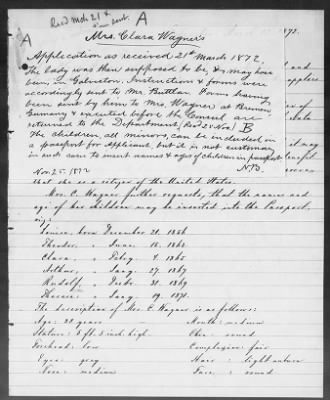 Rec'd Mch 21 &
A
in sent.
A
1872.
Mrs. Clara Wagner's
Application as received 21st March 1872.
The body was then supposed to be, & may have
been, in Galveston. Instruction & forms were
accordingly sent to Mr. Buttlar. Forms having
been sent by him to Mrs. Wagner at Bremen,
Germany & executed before the Consul are
returned to the Department, Rec'd 25 Nov. B
The children, all minors, can be included in
a passport for Applicant, but it is not customary
in such case to insert names & ages of children in passport.
Nov 25. 1872
N.B.
that she is a citizen of the United States.
Mrs. C. Wagner further requests, that the names and
age of her children may be inserted into the Passport,
viz:
Louise, born December 20. 1856
Theodor, " June 18. 1862
Clara, " Febry. 4. 1865
Arthur, " Jany. 27. 1867
Rudolf, " 31. 1869
" Jany. 19. 1871.
The description of Mrs. C. Wagner is as follows:
Age: 38 years
Mouth: medium
Stature: 5 ft. 2 inch. high.
Chin: round
Forehead: low
Complexion: fair
Eyes: grey
Hair: light auburn
Nose: medium
Face: round